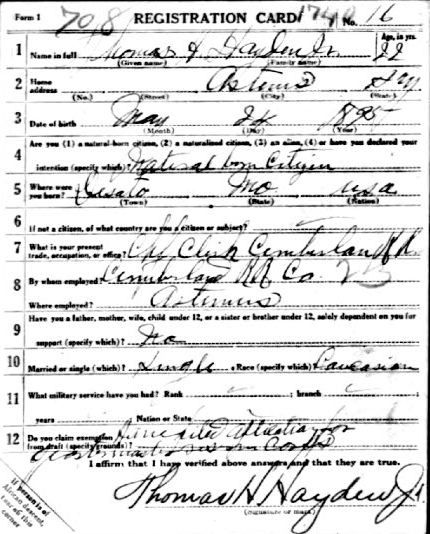 Form 1 708 REGISTRATION CARD 1740 No. 16
1 Name in full Thomas H Hayden Jr. Age, in yrs. 22
(Given name) (Family name)
2 Home address Artemus Ky
(No.) (Street) (City) (State)
3 Date of birth May 24 1895
(Month) (Day) (Year)
4 Are you (1) a natural-born citizen, (2) a naturalized citizen, (3) an alien, (4) or have you declared your
intention (specify which)? Natural born Citizen
5 Where were you born? Mo USA
(Town) (State) (Nation)
6 If not a citizen, of what country are you a citizen or subject?
7 What is your present trade, occupation, or office? Clerk Cumberland R.R.
8 By whom employed? Cumberland RR Co.
Where employed? Artemus
9 Have you a father, mother, wife, child under 12, or a sister or brother under 12, solely dependent on you for
support (specify which)? No
10 Married or single (which)? Single Race (specify which)? Caucasian
11 What military service have you had? Rank ; branch
years ; Nation or State
12 Do you claim exemption from draft (specify grounds)?
I affirm that I have verified above answers and that they are true.
Thomas H Hayden Jr.
(Signature or mark)
If person is of
African descent,
tear off this
corner